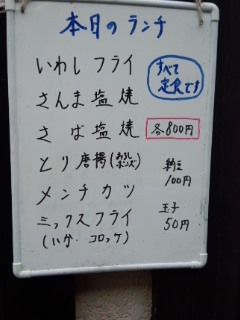 本日のランチ
いわしフライ
すべて
定食です
さんま塩焼
さば塩焼
各800円
とり唐揚(おろしポン酢)
納豆
100円
メンチカツ
玉子
50円
ミックスフライ
(いか、コロッケ)